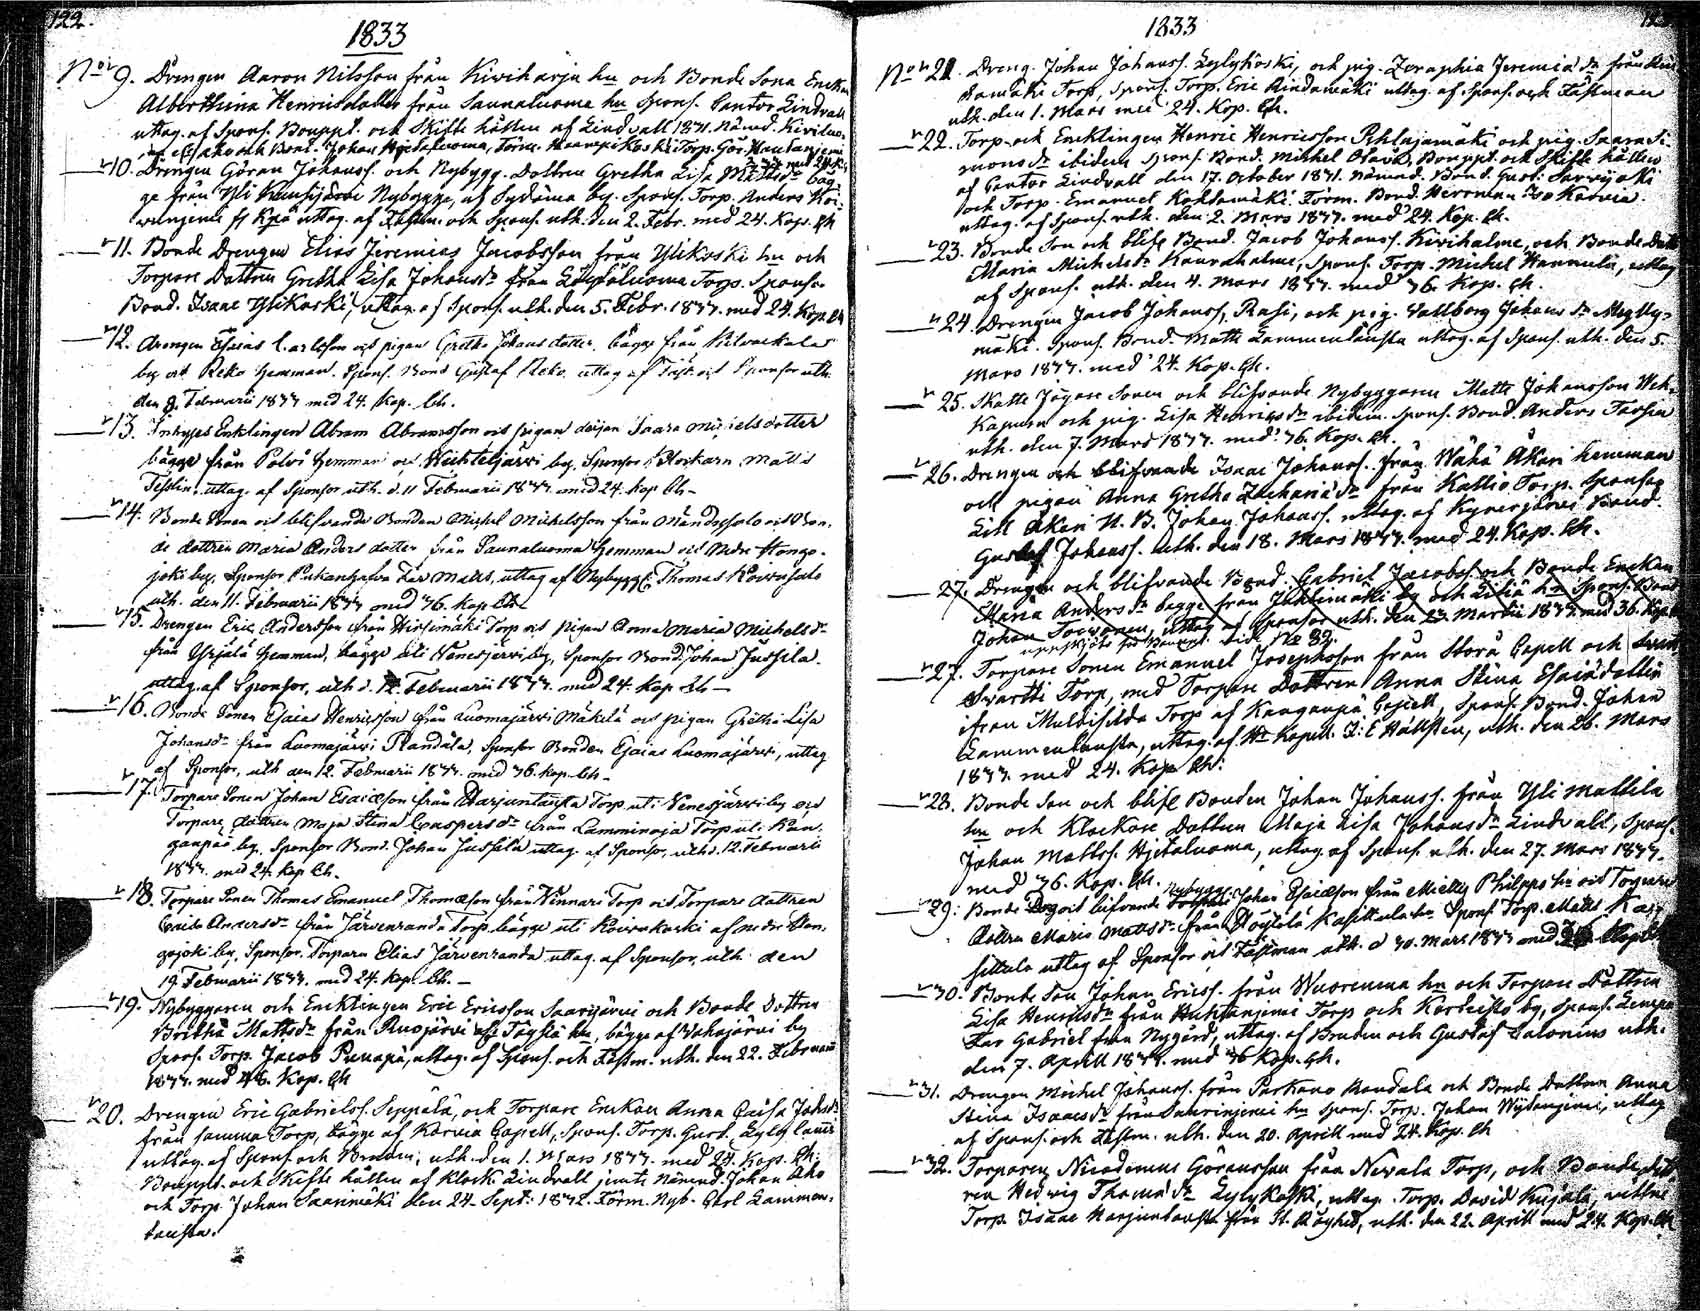 122.
1833
No 9. Drengen Aaron Nilsson från Kiviharju hn och Bonde Sona Enckan
Albertthina Henricsdotter från Saunaluoma hn Spons. Cantor Lindvall
uttag. af Spons. Bouppt. och Skifte hållen af Lindvall 1831. Nämd.
10. Drengen Göran Johanss. och Nybygg. Dottren Gretha Lisa Mattsdr båg-
ge från Yli Nybygge, af Sydänma by. Spons. Torp. Anders Koi-
uttag. af Fästm. och Spons. utb. den 2. Febr. med 24. Kop. Ch
11. Bonde Drengen Elias Jeremias Jacobsson från Ylikoski hn och
Torpare Dottren Gretha Lisa Johansdr från Torp. Sponsor
Bond. Isaac Ylikoski, uttag. af Spons. utb. den 5. Febr. 1833. med 24. Kop. Ch
12. Drengen Esaias Carlsson och pigan Gretha Johans dotter, bägge från
by och Reko hemman. Spons. Bond Gustaf Reko, uttag af Fäst. och Sponsor utb.
den 8. Februarii 1833 med 24. Kop. Ch.
13. Inhyses Enklingen Abram Abramsson och pigan Saara Michelsdotter
bägge från Polvi hemman och by. Sponsor Klockarn Matts
Tesslin. uttag. af Sponsor utb. d. 11 Februarii 1833 med 24. kop Ch-
14. Bonde Sonen och blifvande Bonden Michel Michelsson från och Bon-
de dottren Maria Anders dotter från Saunaluoma hemman och Nedre Hongo-
joki by. Sponsor Matts, uttag af Nybygg. Thomas Koivusalo
utb. den 11. Februarii 1833 med 36. kop Ch
15. Drengen Eric Andersson från Hirsimäki Torp och pigan Anna Maria Michelsdr
från Yrjälä hemman, bägge uti Venesjärvi by, Sponsor Bond. Johan Jussila.
uttag. af Sponsor, utb d. 12. Februarii 1833. med 24. kop Ch-
16. Bonde Sonen Esaias Henricsson från Luomajärvi Mäkelä och pigan Gretha Lisa
Johansdr från Luomajärvi Randala, Sponsor Bonden Esaias Luomajärvi, uttag
af Sponsor, utb den 12. Februarii 1833. med 36. kop. Ch-
17. Torpare Sonen Johan Esaiæson från Harjuntausta Torp uti Venesjärvi by och
Torpare dottren Maja Stina Caspersdr från Lamminoja Torp uti Kan-
gaupää by. Sponsor Bond. Johan Jussila uttag. af Sponsor, utb d. 12. Februarii
1833. med 24. kop Ch.
18. Torpare Sonen Thomas Emanuel Thomæson från Vennari Torp och Torpare dottren
Caisa Andersdr från Järvenranda Torp bägge uti Koivukoski af nedre Hon-
gojoki by. Sponsor Torparn Elias Järvenranda uttag. af Sponsor, utb. den
19. Februarii 1833. med 24. Kop. Ch.-
19. Nybyggaren och Encklingen Eric Ericsson Saarijärvi och Bonde Dottren
Britha Mattsdr från Ruojärvi hn, bägge af Vahojärvi by
Spons. Torp. Jacob Punapä, uttag. af Spons. och Fästm. utb. den 22. Februarii
1833. med 48. Kop. Ch
20. Drengen Eric Gabrielss. Seppälä, och Torpare Enckan Anna Caisa Johsdr
från samma Torp, bägge af Karvia Capell, Spons. Torp. Gust.
uttag. af Spons. och Brudm; utb. den 1. Mars 1833. med 24. Kop. Ch.
Bouppt. och Skifte hållen af Klock. Lindvall jemte Nämnd. Johan Aho
och Torp. Johan Saarimäki den 24. Sept. 1832. Förm. Nyb. Carl Lammen-
tausta.
1833
No 21. Dreng. Johan Johanss. Lylykoski, och pig. Zeraphia Jeremiædr från Rin-
damäki Torp, Spons. Torp. Eric Rindamäki uttag. af Spons. och Fästman
utb. den 1. Mars med 24. Kop. Ch.
22. Torp. och Encklingen Henric Henricsson Pihlajamäki och pig. Saara Si-
monsdr ibidem Spons. Bond. Michel Ojava, Bouppt. och Skifte hållen
af Cantor Lindvall den 17. October 1831. Nämnd. Bond. Gust.
och Torp. Emanuel Kohdamäki. Förm. Bond. Herrman Karvia.
uttag. af Spons. utb. den 2. Mars 1833. med 24. Kop. Ch.
23. Bonde Son och blif. Bond. Jacob Johanss. Kiviholme, och Bonde Dottr
Maria Michelsdr, Spons. Torp. Michel Hannula, uttag
af Spons. utb. den 4. Mars 1833. med 36. Kop. Ch.
24. Drengen Jacob Johanss. Rasi, och pig. Vallborg Johansdr Mylly-
mäki. Spons. Bond. Matts Lammentausta uttag. af Spons. utb. den 5.
Mars 1833. med 24. Kop. Ch.
25. Skatte Jägare Sonen och blifvande Nybyggaren Matts Johansson Weh-
kapura och pig. Lisa Henricsdr ibidem. Spons. Bond. Anders Tarsia
utb. den 7. Mars 1833. med 36. Kop. Ch.
26. Drengen och blifvande Isaac Johanss. från Wähä Åkeri hemman
och pigan Anna Gretha Zachariædr från Kallio Torp. Sponsor
Lill Åkeri N. B. Johan Johanss. uttag. af Kynersjärvi Bond.
Gustaf Johanss. utb. den 18. Mars 1833. med 24. Kop. Ch.
27. Drengen och blifvande Bond. Gabriel Jacobss. och Bonde Enckan
Maria Andersdr begge från by och hn Spons. Bond
Johan, uttag af Sponsor utb. den 23. Martii 1833. med 36. Kop.
uppskjöts för Bouppt. vide No 89.
27. Torpare Sonen Emanuel Josephsson från Storå Capell och
Svartti Torp, med Torpare Dottren Anna Stina Esaiædotter
ifrån Multisilda Torp af Kangaupä Capell, Spons. Bond. Johan
Lammentausta, uttag. af Hr Kapell. Z: E Hällsten, utb. den 26. Mars
1833. med 24. Kop Ch:
28. Bonde Son och blif Bonden Johan Johanss. från Yli Mattila
hn och Klockare Dottren Maja Lisa Johansdr Lindvall, Spons.
Johan Mattss. Hietaluoma, uttag. af Spons. utb. den 27. Mars 1833.
med 36. Kop. Ch.
29. Bonde och blifvande Nybygg. Johan Esaiæson från Mietty Philppo hn och Torpare
dottren Maria Mattsdr från Höylölä Kasittula hn. Spons. Torp. Matts Ka-
sittula uttag af Sponsor och Fästman utb. d 30. Mars 1833 med Kop Ch
30. Bonde Son Johan Ericss. från Wuorenma hn och Torpare Dottren
Lisa Henricsdr från Huhtanjemi Torp och by, Spons.
Gabriel från Nygård, uttag. af Bruden och Gustaf Salonius utb.
den 7. Aprill 1833. med 36 Kop. Ch.
31. Drengen Michel Johanss. från Parkano Randala och Bonde Dottren Anna
Stina Isaacsdr från hn Spons. Torp. Johan, uttag
af Spons. och Fästm. utb. den 20. Aprill med 24. Kop. Ch
32. Torparen Nicodemus Göransson från Nevala Torp, och Bonde dott-
ren Hedwig Thomædr Lylykoski, uttag. Torp. David Kujala, vittne
Torp. Isaac Harjuntausta från St. Råghed, utb. den 22. Aprill med 24. Kop. Ch